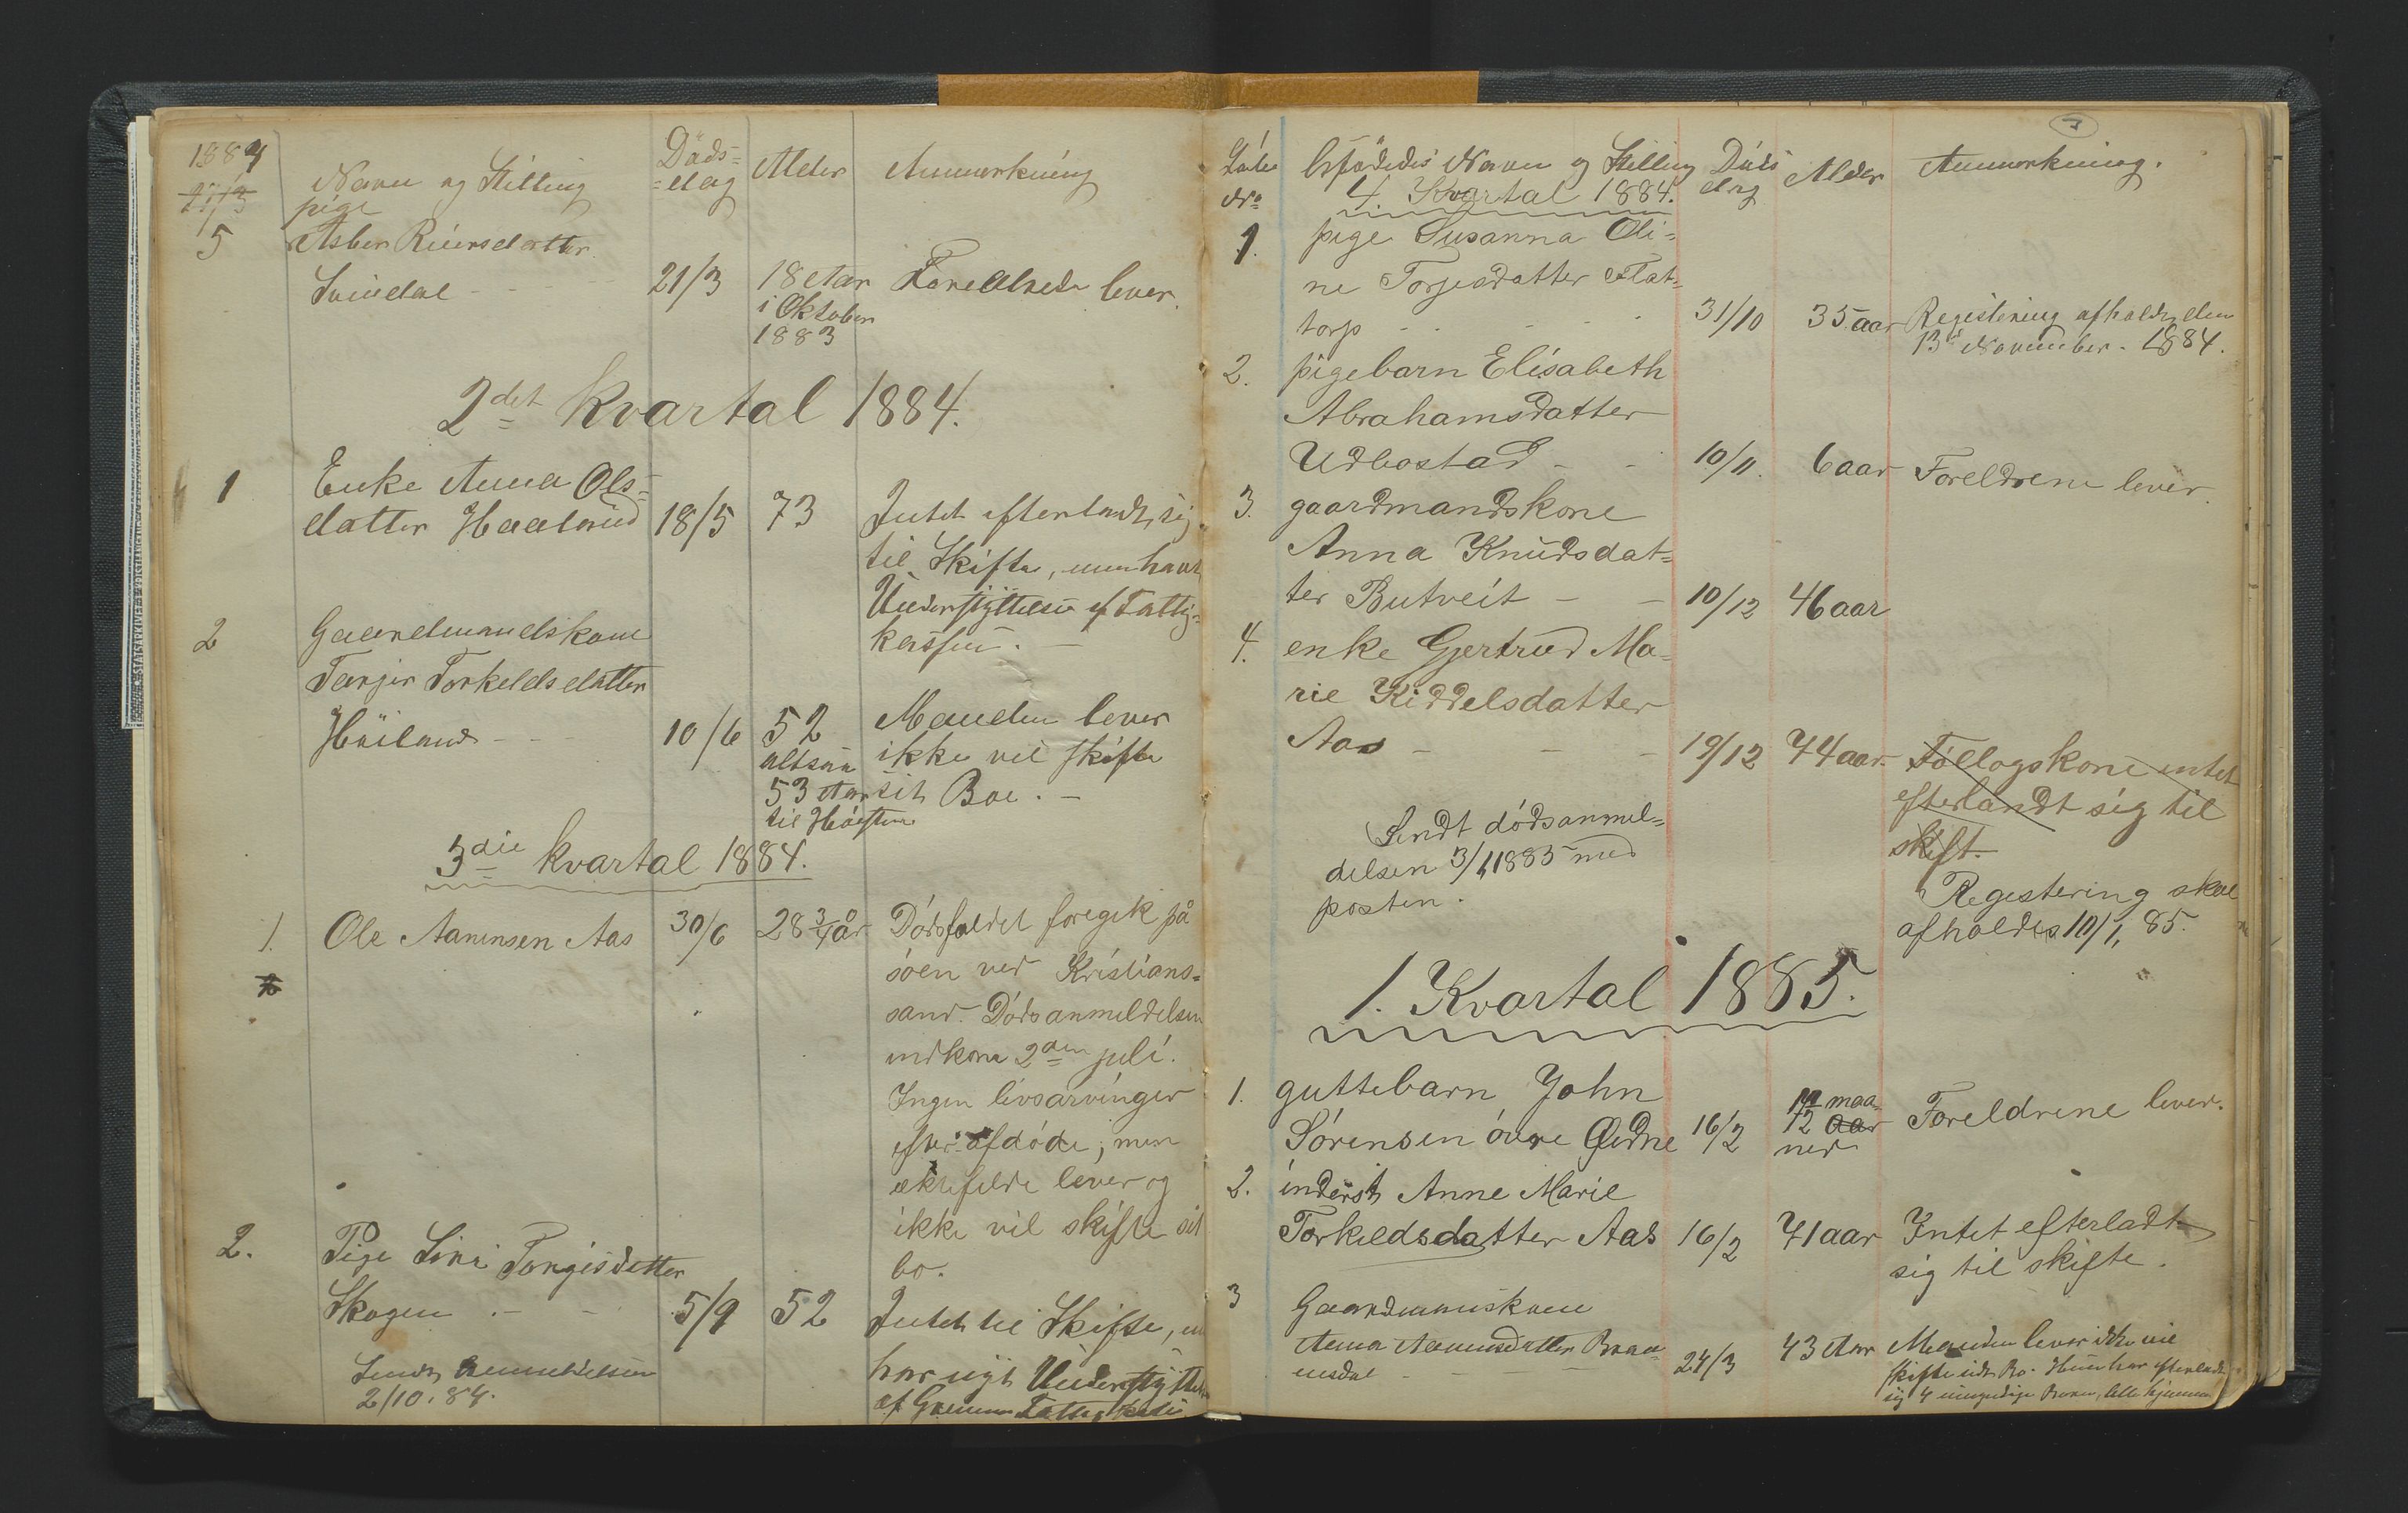 1884
21/3
Navn og Stilling
Döds-
-dag
Alder
Anmærkning
pige
5
Asber Reiersdatter
Svindal - - - -
21/3
18 Aar
i Oktober
1883
Foreldrede lever.
2det kvartal 1884.
1
Enke Anna Ols-
datter Haaland
18/5
73
Intet efterladt sig
til Skifte, men havt
Understyttelse af Fattig-
kassen. -
2
Gaardmandskone
Tarjer Torkeldsdatter
Höiland - - -
10/6
52
altsaa
53 Aar
til Hösten
Manden lever
ikke vil skifte
sit Boe. -
3die kvartal 1884.
1.
Ole Aanensen Aas
30/6
28 3/4 år
Dódsfaldet foregik på
sóen ved Kristians-
sand. Dódsanmeldelsen
indkom 2den juli.
Ingen livsarvinger
efter afdóde, men
ektefelde lever og
ikke vil skifte sit
bo.
2.
Pige Siri Torgisdatter
Skogen - -
5/9
52
Intet til Skifte,
har nydt Understyttelse
af Fattigkasse
Sendt Anmeldelsen
2/10.84.
7
Löbe
No
Afdödes Navn og Stilling
Döds
dag
Alder
Anmærkning.
4. Kvartal 1884.
1.
pige Susanna Oli-
ne Torjesdatter Flat-
torp - - - -
31/10
35 aar
Registering afholdes den
13de November. 1884.
2.
pigebarn Elisabeth
Abrahamsdatter
Udbostad - -
10/11.
6 aar
Foreldrene lever.
3.
gaardmandskone
Anna Knudsdat-
ter Butveit - -
10/12
46 aar
4.
enke Gjertrud Ma-
rie Kiddelsdatter
Aas - - -
19/12
74 aar.
Fóllogskone intet
efterladt sig til
skift.
Sendt dódsanmel-
delsen 3/1 1885 med
posten.
Regestering skal
afholdes 10/1, 85.
1. Kvartal 1885.
1.
guttebarn John
Sórensen óvre Ødne
16/2
12 aar
maa-
ned
Foreldrene lever.
2.
inderst Anne Marie
Torkeldsdatter Aas
16/2
71 aar
Intet efterladt
sig til skifte.
3
Gaardmandskone
Anna Aanensdatter Braa-
ensdal - - -
24/3
43 Aar
Manden lever ikke vil
skifte sidt Bo. Hun har efterladt
sig 4 umyndige Børn, alle hjemme